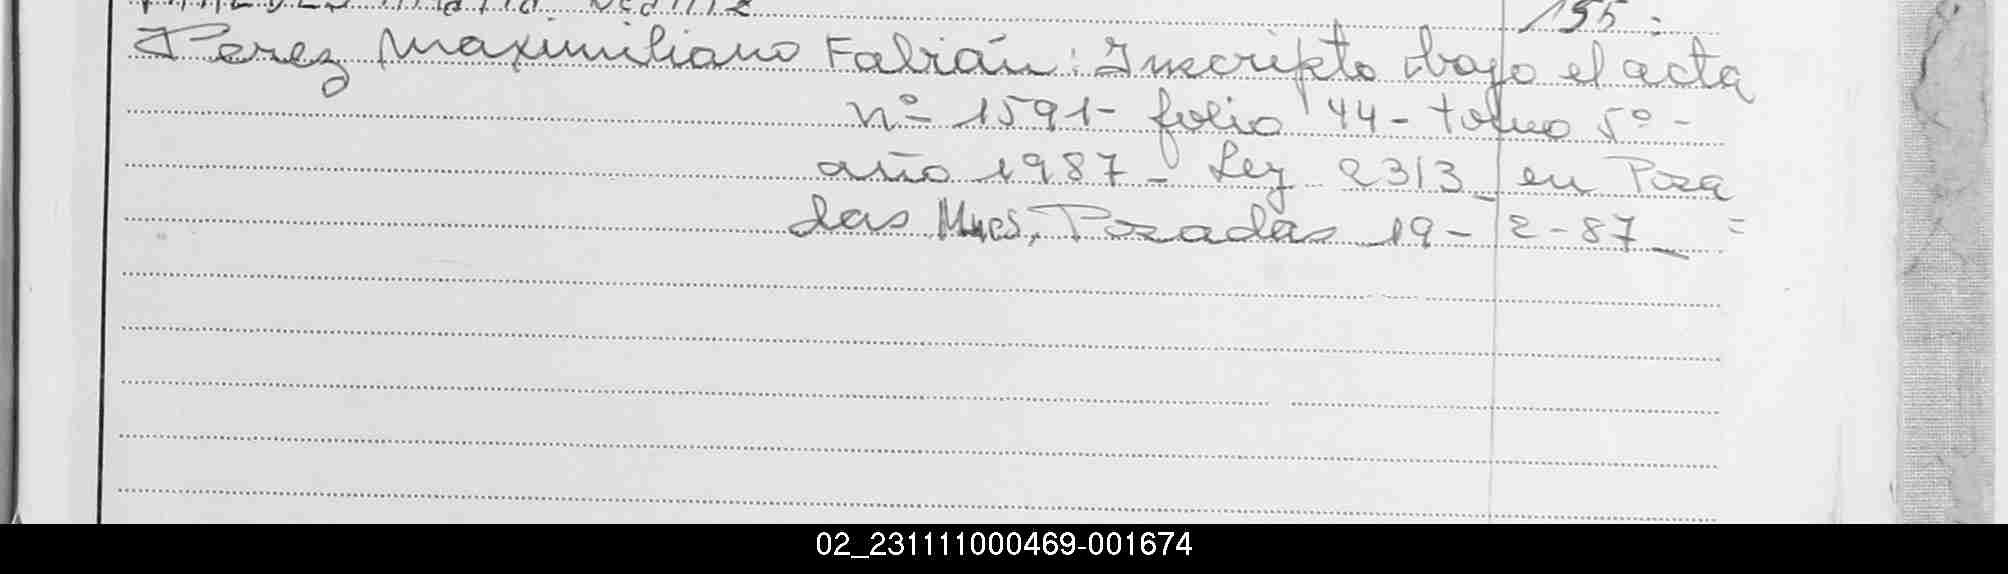 155.
Perez Maximiliano Fabián: Inscripto bajo el acta
nº 1591- folio 44- tomo 5º-
año 1987- Ley 2313_ en Posa
das Mnes, Posadas 19-2-87_ =
02_231111000469-001674